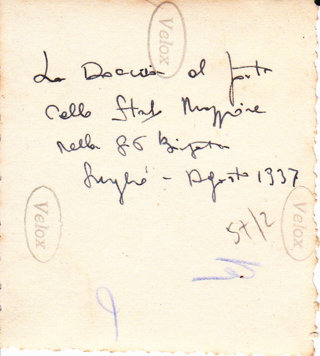 Velox
La Doccia al
dello Stato Maggiore
nella Brigata
Luglio - Agosto 1937
Velox
Velox
57/2